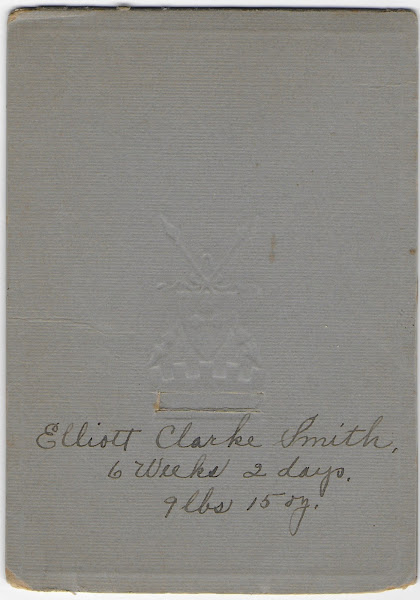 Elliott Clarke Smith,
6 Weeks 2 days.
9 lbs 15 oz.